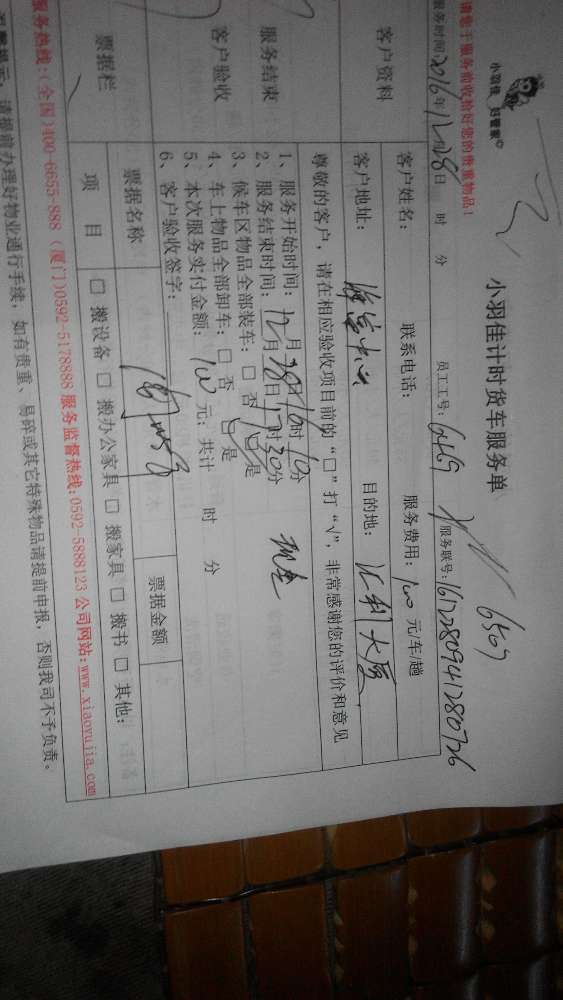 请您于服务前收拾好您的贵重物品!
小羽佳 好管家
小羽佳计时货车服务单
6507
服务时间:2016年12月28日 时 分 员工工号: 服务联号:161228094128076
客户资料
客户姓名: 联系电话: 服务费用:100元/车/趟
客户地址: 海富中心 目的地:汇利大厦
尊敬的客户，请在相应验收项目前的“□”打“√”，非常感谢您的评价和意见
服务结束
客户验收
1、服务开始时间:12月28日16时10分
2、服务结束时间:12月28日17时30分
3、候车区物品全部装车:□否 □是
4、车上物品全部卸车:□否 □是
5、本次服务实付金额:100元;共计 时 分
6、客户验收签字:
票据栏
票据名称 票据金额
项 目 □搬设备 □搬办公家具 □搬家具 □搬书 □其他:
服务热线:(全国)400-6655-888 (厦门)0592-5178888 服务监督热线:0592-5888123 公司网站:www.xiaoyujia.com
请提前办理好物业通行手续，如有贵重、易碎或其它特殊物品请提前申报，否则我司不予负责。